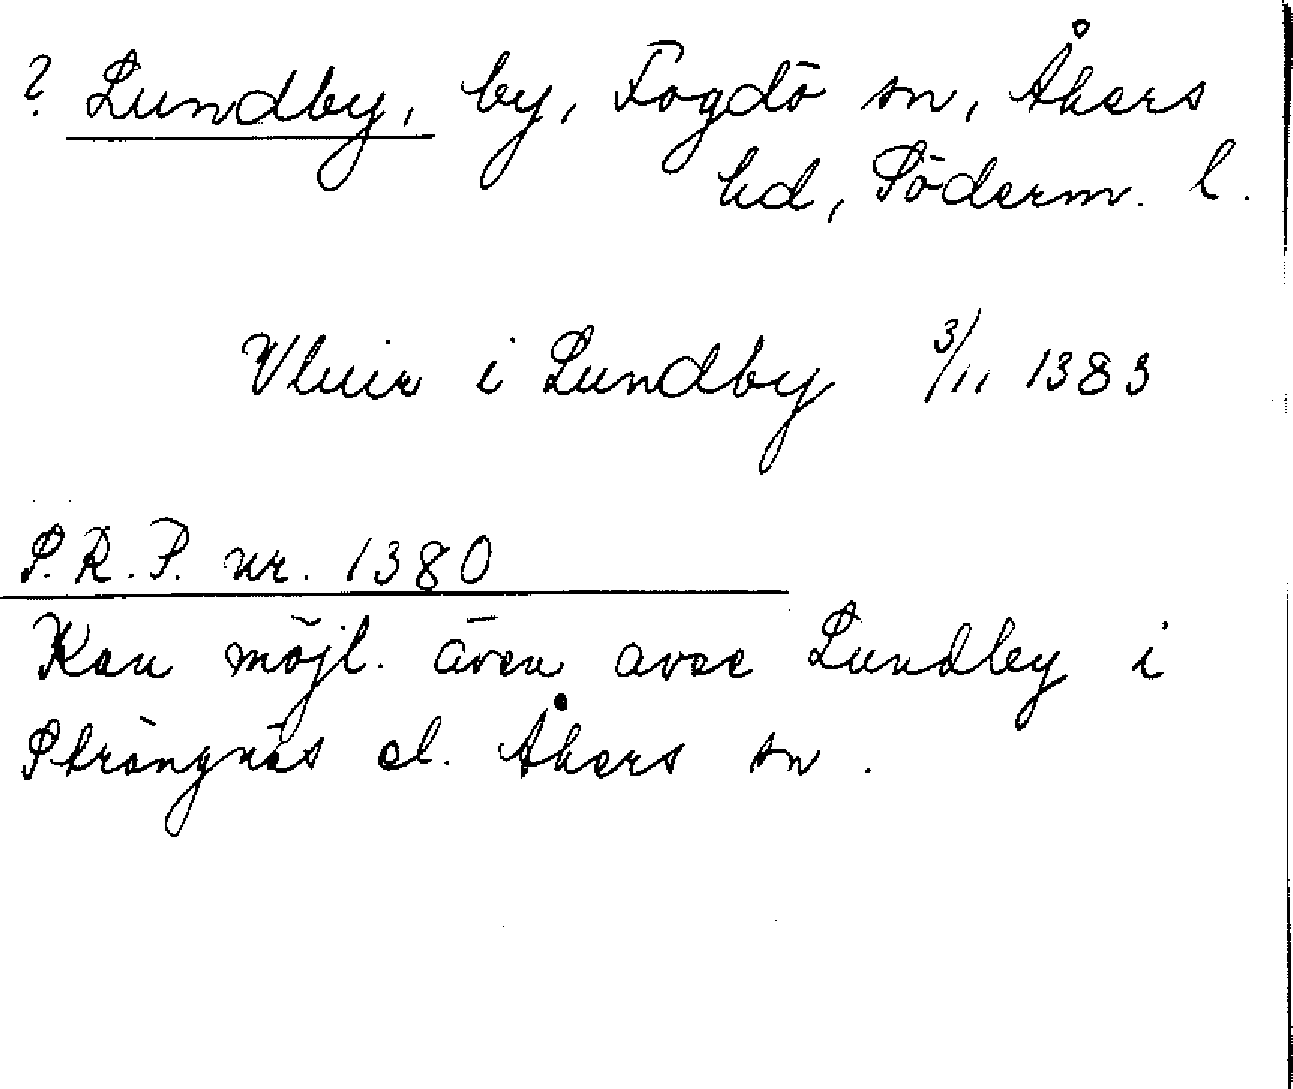 ? Lundby, by, Fogdö sn, Åkers
hd, Söderm. l.
Vluir i Lundby 3/11 1383
S.R.P. nr. 1380
Kan möjl. även avse Lundby i
Strängnäs el. Åkers sn.